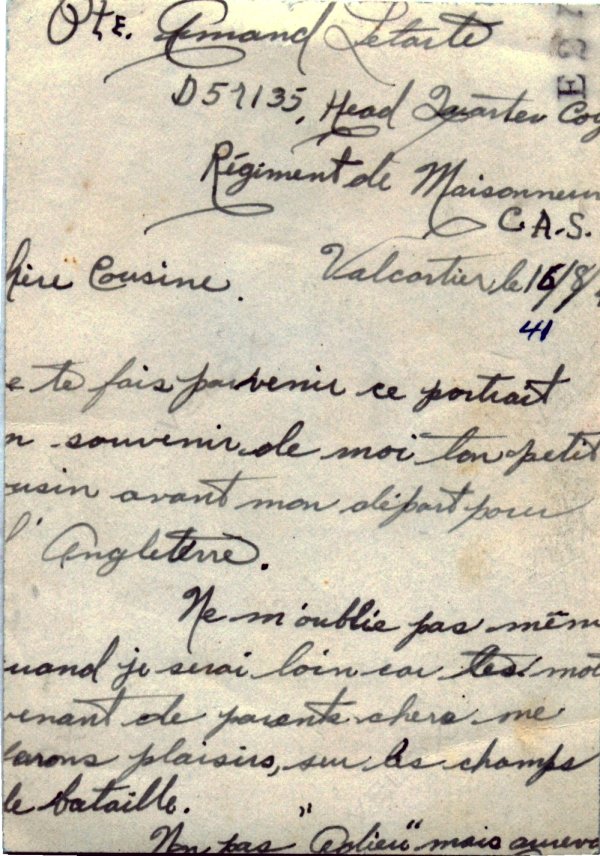 Pte. Armand Letarte
D57135, Head Quarter Coy
Régiment de Maisonneuv
C.A.S.
hère Cousine. Valcartier, le 16/8/
41
e te fais parvenir ce portrait
n souvenir de moi ton petit
ousin avant mon départ pour
l'Angleterre.
Ne m'oublie pas mêm
uand je serai loin car tes mot
venant de parents chers me
ferons plaisirs, sur les champs
de bataille.
Non pas "Adieu" mais aurevo